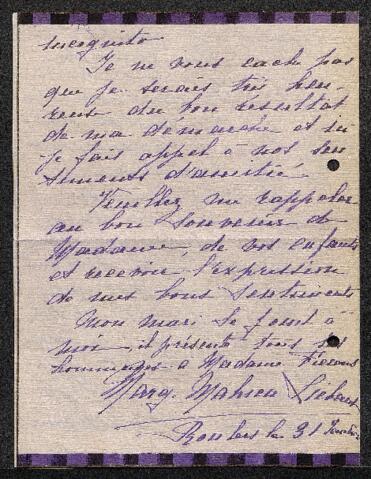 incognito
Je ne vous cache pas
que je serais très heu-
reuse du bon resultat
de ma démarche et si
je fais appel à vos sen
timents d'amitié.
Veuillez me rappeler
au bon souvenir de
Madame, de vos enfants
et recevoir l'expression
de mes bons sentiments
Mon mari se joint à
moi, il présente tous ses
hommages à Madame
Marg. Mahieu
le 31